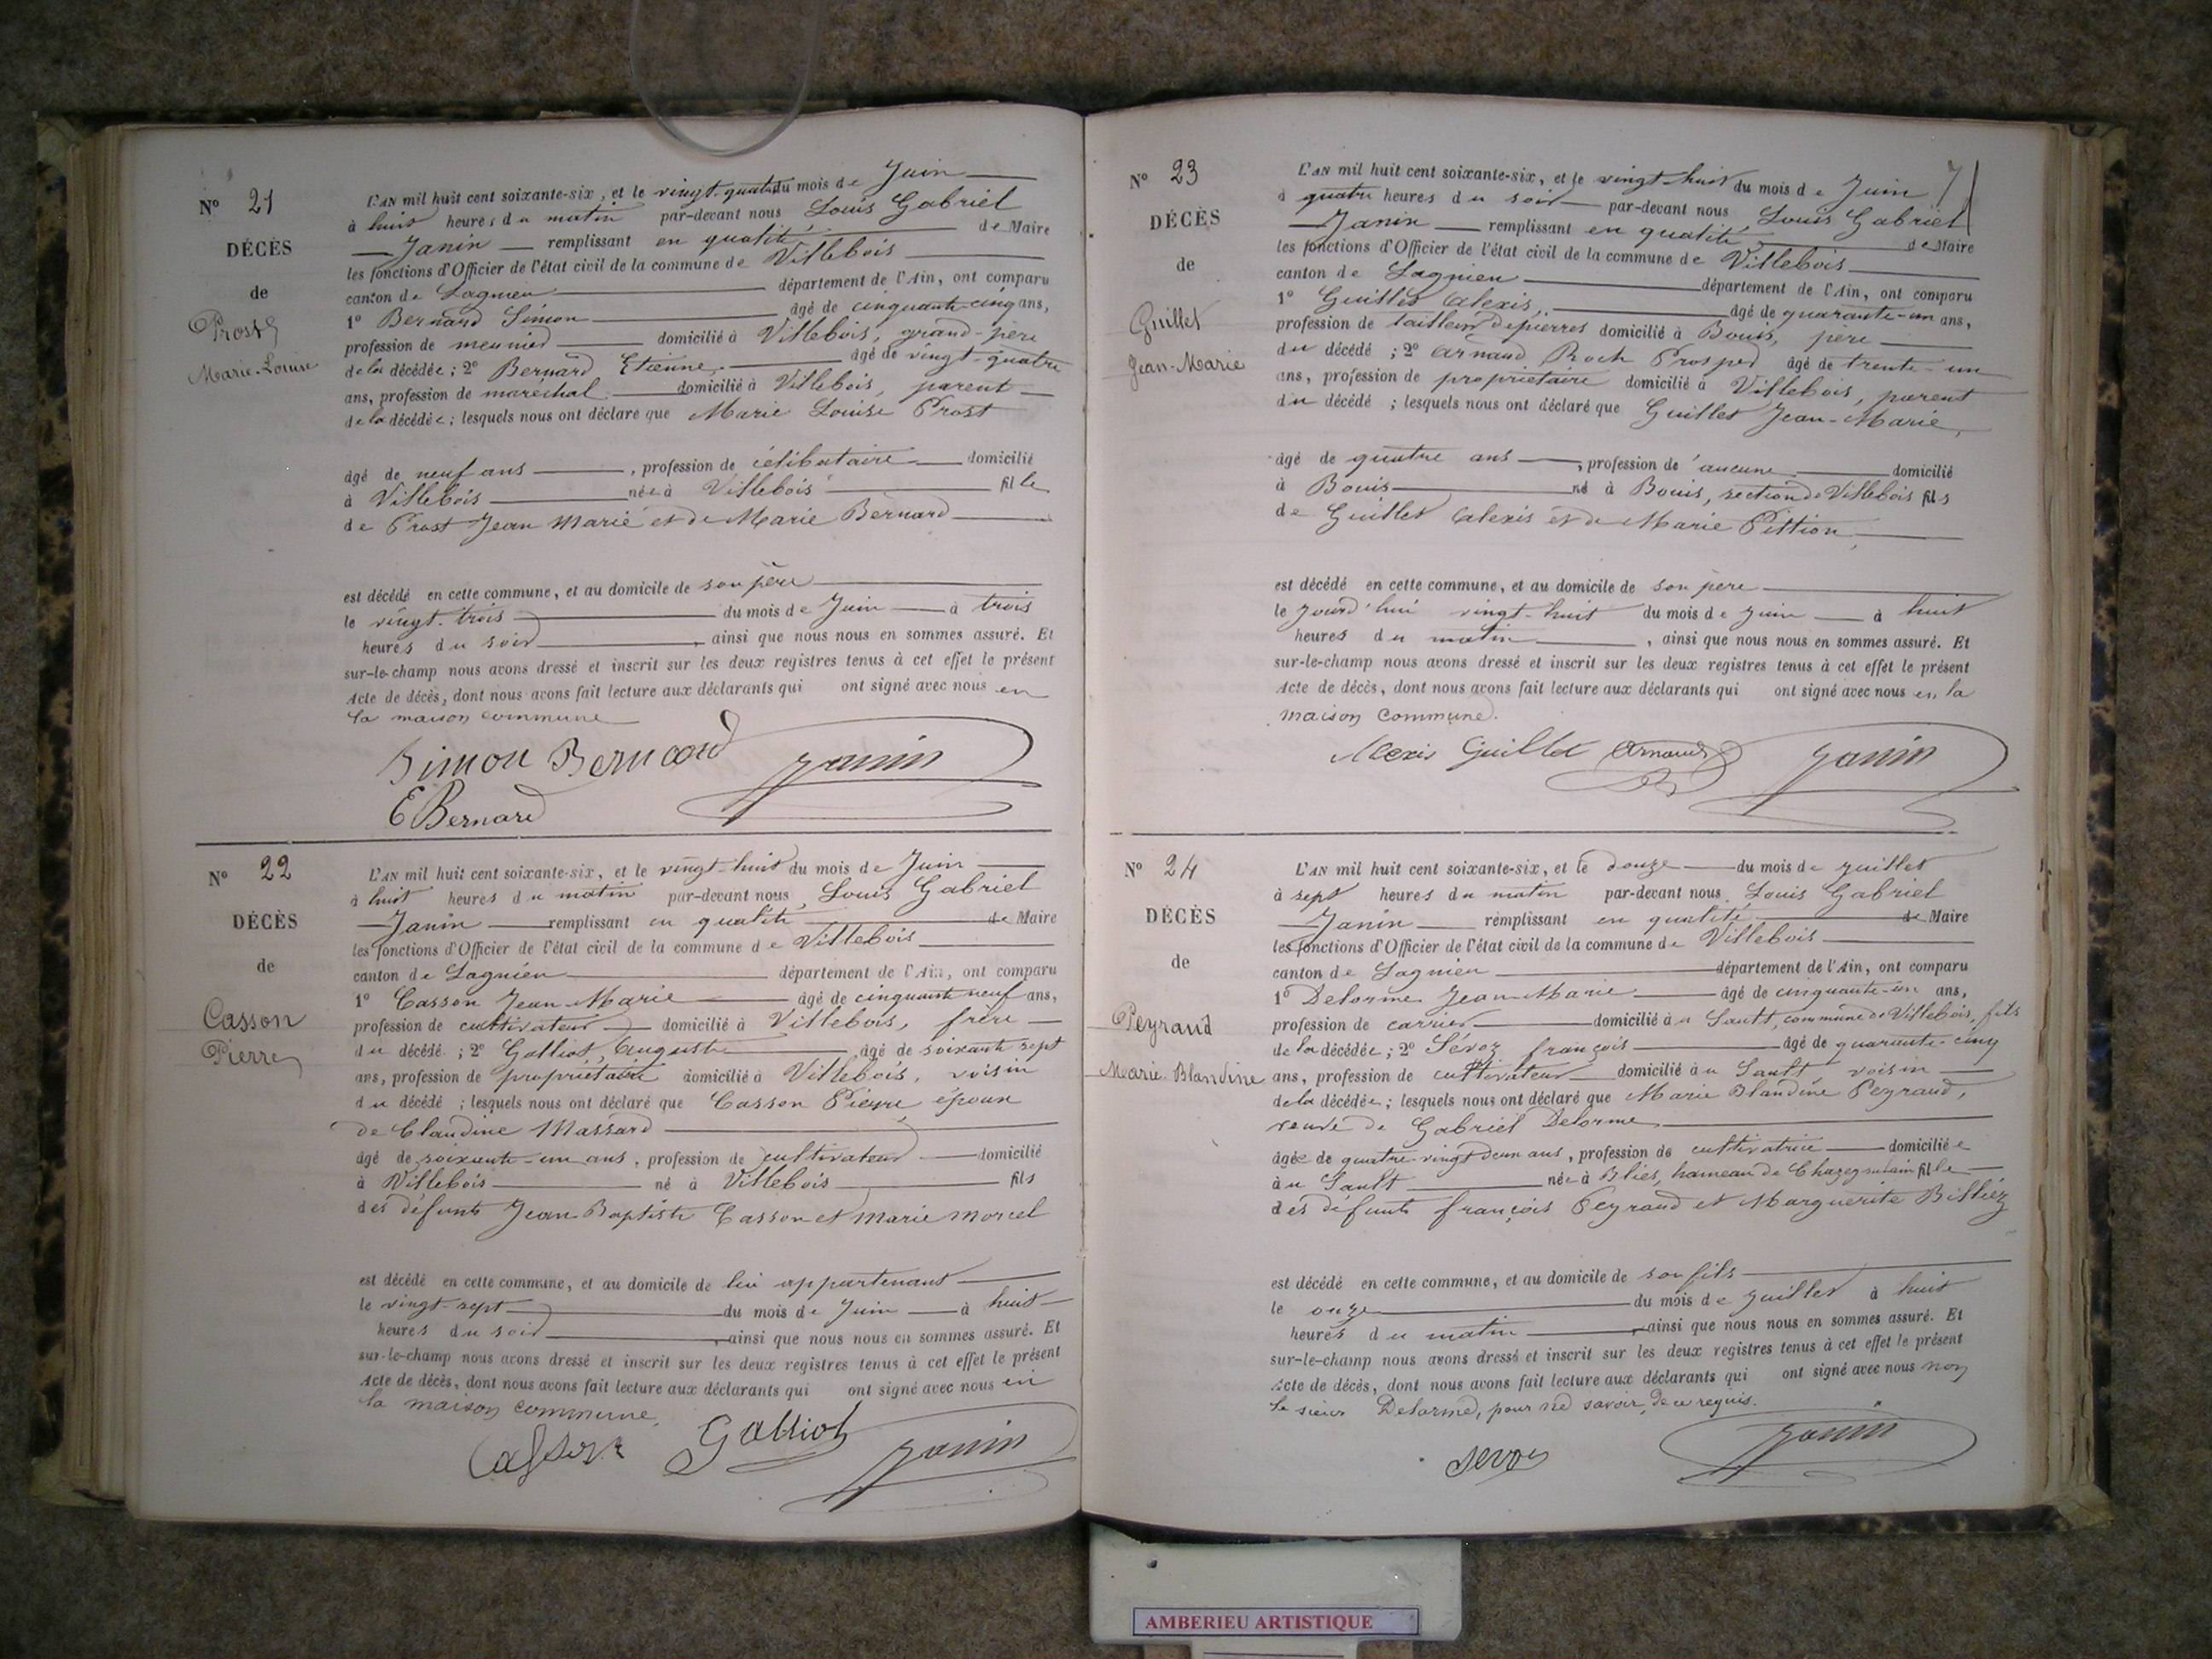 N° 21
DÉCÈS
de
Prost
Marie-Louise
L'AN mil huit cent soixante-six, et le vingt-quatre du mois de Juin
à huit heures du matin par-devant nous Louis Gabriel
Janin remplissant en qualité de Maire
les fonctions d'Officier de l'état civil de la commune de Villebois
canton de Lagnieu département de l'Ain, ont comparu
1° Bernard Simon âgé de cinquante-cinq ans,
profession de meunier domicilié à Villebois, grand-père
de la décédée ; 2° Bernard Etienne, âgé de vingt-quatre
ans, profession de maréchal domicilié à Villebois, parent
de la décédée ; lesquels nous ont déclaré que Marie Louise Prost
âgé de neuf ans, profession de célibataire domicilié
à Villebois née à Villebois fille
de Prost Jean Marie et de Marie Bernard
est décédé en cette commune, et au domicile de son père
le vingt-trois du mois de Juin à trois
heures du soir, ainsi que nous nous en sommes assuré. Et
sur-le-champ nous avons dressé et inscrit sur les deux registres tenus à cet effet le présent
Acte de décès, dont nous avons fait lecture aux déclarants qui ont signé avec nous en
la maison commune
Simon Bernard Janin
E Bernard
N° 22
DÉCÈS
de
Casson
Pierre
L'AN mil huit cent soixante-six, et le vingt-huit du mois de Juin
à huit heures du matin par-devant nous, Louis Gabriel
Janin remplissant en qualité de Maire
les fonctions d'Officier de l'état civil de la commune de Villebois
canton de Lagnieu département de l'Ain, ont comparu
1° Casson Jean-Marie âgé de cinquante neuf ans,
profession de cultivateur domicilié à Villebois, frère
du décédé ; 2° Galliot, Auguste âgé de soixante sept
ans, profession de propriétaire domicilié à Villebois, voisin
du décédé ; lesquels nous ont déclaré que Casson Pierre époux
de Claudine Massard
âgé de soixante-un ans, profession de cultivateur domicilié
à Villebois né à Villebois fils
des défunts Jean Baptiste Casson et Marie Morcel
est décédé en cette commune, et au domicile de lui appartenant
le vingt-sept du mois de Juin à huit
heures du soir, ainsi que nous nous en sommes assuré. Et
sur-le-champ nous avons dressé et inscrit sur les deux registres tenus à cet effet le présent
Acte de décès, dont nous avons fait lecture aux déclarants qui ont signé avec nous en
la maison commune.
Casson Galliot Janin
N° 23
DÉCÈS
de
Guillet
Jean-Marie
7
L'AN mil huit cent soixante-six, et le vingt-huit du mois de Juin
à quatre heures du soir par-devant nous Louis Gabriel
Janin remplissant en qualité de Maire
les fonctions d'Officier de l'état civil de la commune de Villebois
canton de Lagnieu département de l'Ain, ont comparu
1° Guillet Alexis, âgé de quarante-un ans,
profession de tailleur de pierres domicilié à Bouis, père
du décédé ; 2° Arnaud Roch Prosper âgé de trente-un
ans, profession de propriétaire domicilié à Villebois, parent
du décédé ; lesquels nous ont déclaré que Guillet Jean-Marie,
âgé de quatre ans, profession de aucune domicilié
à Bouis né à Bouis, section de Villebois fils
de Guillet Alexis et de Marie Pittion
est décédé en cette commune, et au domicile de son père
le jourd'hui vingt-huit du mois de juin à huit
heures du matin, ainsi que nous nous en sommes assuré. Et
sur-le-champ nous avons dressé et inscrit sur les deux registres tenus à cet effet le présent
Acte de décès, dont nous avons fait lecture aux déclarants qui ont signé avec nous en la
maison commune.
Alexis Guillet Arnaud Janin
N° 24
DÉCÈS
de
Peyraud
Marie Blandine
L'AN mil huit cent soixante-six, et le douze du mois de juillet
à sept heures du matin par-devant nous, Louis Gabriel
Janin remplissant en qualité de Maire
les fonctions d'Officier de l'état civil de la commune de Villebois
canton de Lagnieu département de l'Ain, ont comparu
1° Delorme Jean-Marie âgé de cinquante-un ans,
profession de carrier domicilié au Sault, commune de Villebois, fils
de la décédée ; 2° Sévoz françois âgé de quarante-cinq
ans, profession de cultivateur domicilié au Sault voisin
de la décédée ; lesquels nous ont déclaré que Marie Blandine Peyraud,
veuve de Gabriel Delorme
âgée de quatre-vingt deux ans, profession de cultivatrice domiciliée
au Sault née à Bliès, hameau de Chazey sur ain fille
des défunts françois Peyraud et Marguerite Billiéz
est décédé en cette commune, et au domicile de son fils
le onze du mois de juillet à huit
heures du matin, ainsi que nous nous en sommes assuré. Et
sur-le-champ nous avons dressé et inscrit sur les deux registres tenus à cet effet le présent
Acte de décès, dont nous avons fait lecture aux déclarants qui ont signé avec nous non
le sieur Delorme, pour ne savoir, de ce requis.
Sevoz Janin
AMBERIEU ARTISTIQUE